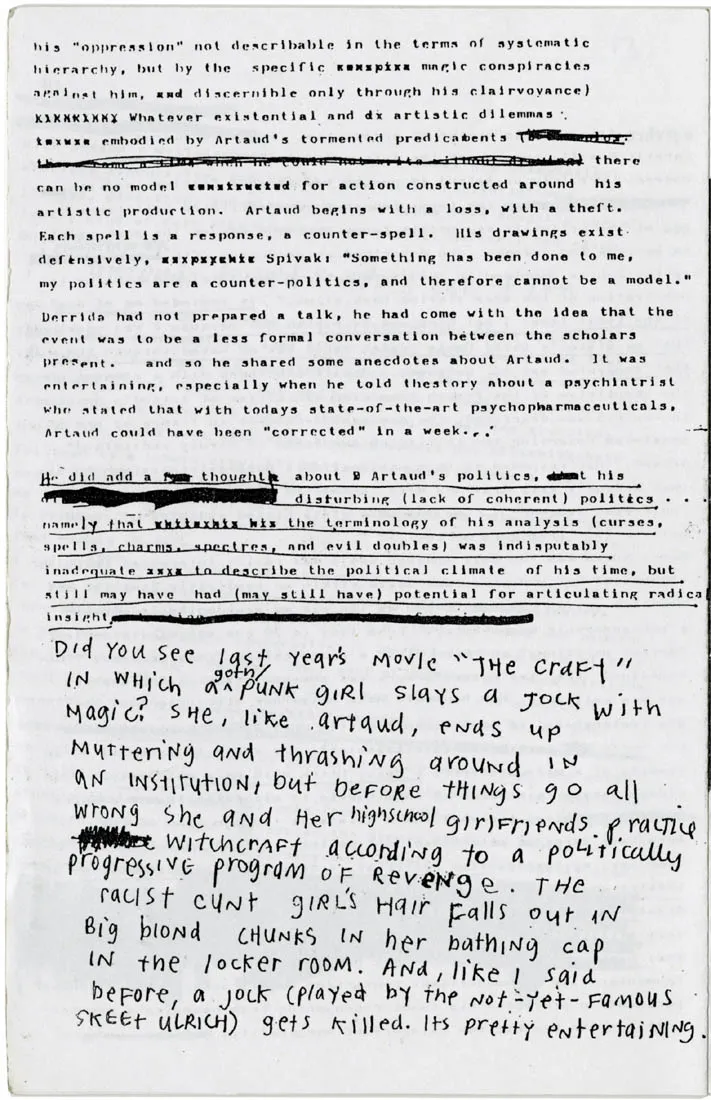 his "oppression" not describable in the terms of systematic
hierarchy, but by the specific magic conspiracies
against him, and discernible only through his clairvoyance)
Whatever existential and artistic dilemmas
embodied by Artaud's tormented predicaments
there
can be no model for action constructed around his
artistic production. Artaud begins with a loss, with a theft.
Each spell is a response, a counter-spell. His drawings exist
defensively, Spivak: "Something has been done to me,
my politics are a counter-politics, and therefore cannot be a model."
Derrida had not prepared a talk, he had come with the idea that the
event was to be a less formal conversation between the scholars
present. and so he shared some anecdotes about Artaud. It was
entertaining, especially when he told thestory about a psychiatrist
who stated that with todays state-of-the-art psychopharmaceuticals,
Artaud could have been "corrected" in a week...
He did add a thought about Artaud's politics, his
disturbing (lack of coherent) politics ...
namely that the terminology of his analysis (curses,
spells, charms, spectres, and evil doubles) was indisputably
inadequate to describe the political climate of his time, but
still may have had (may still have) potential for articulating radical
insight
Did you see last year's movie "The Craft"
in which a goth/ punk girl slays a jock with
magic? She, like artaud, ends up
muttering and thrashing around in
an institution, but before things go all
wrong she and her highschool girlfriends practice
witchcraft according to a politically
progressive program of revenge. The
racist cunt girl's hair falls out in
big blond chunks in her bathing cap
in the locker room. And, like I said
before, a jock (played by the not-yet-famous
Skeet Ulrich) gets killed. Its pretty entertaining.